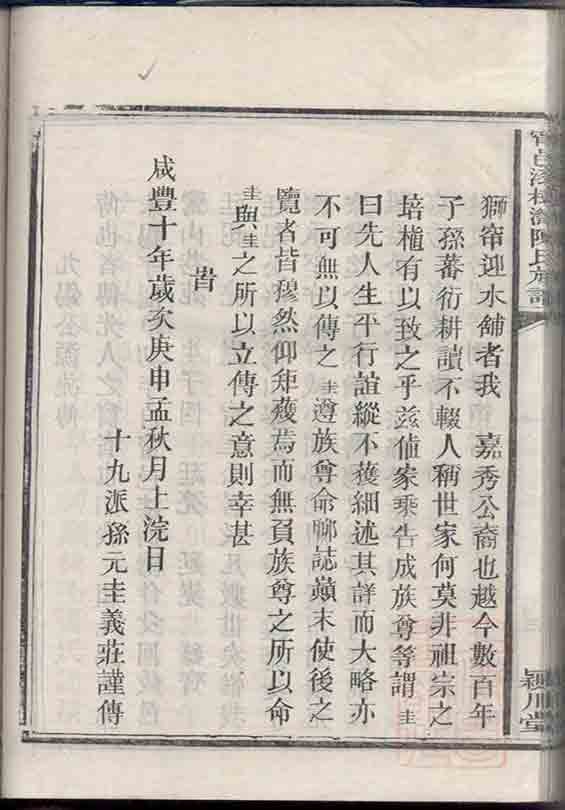 獅窜迎水舖者我　嘉秀公裔也越今數百年
子孫蕃衍耕讀不輟人稱世家何莫非祖宗之
培植有以致之乎兹值家乘告成族尊等謂圭
曰先人生平行誼縱不獲細述其詳而大略亦
不可無以傳之圭遵族尊命聊誌巔末使後之
覽者皆穆然仰矩薙焉而無負族尊之所以命
圭與圭之所以立傳之意則幸甚
旹
咸豐十年歲次庚申孟秋月上浣日
十九派孫元圭義莊謹傳
陳氏族譜
潁川堂